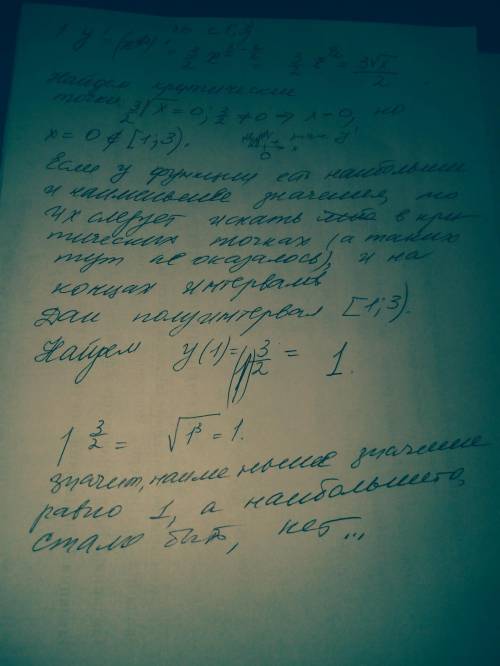 y' = (x^{3/2})' =
= 3/2 x^{3/2 - 1} 3/2 x^{1/2} = 3√x/2
Найдем критические
точки 3/2 √x = 0; 3/2 ≠ 0 → x = 0, но
x = 0 ∉ [1; 3).
0
Если у функции есть наибольшее
и наименьшее значения, то
их следует искать в кри-
тических точках (а таких
тут не оказалось), и на
концах интервала
Дан полуинтервал [1; 3).
Найдем y(1) = 3/2 = 1.
1^{3/2} = √1³ = 1.
значит, наименьшее значение
равно 1, а наибольшего,
стало быть, нет...